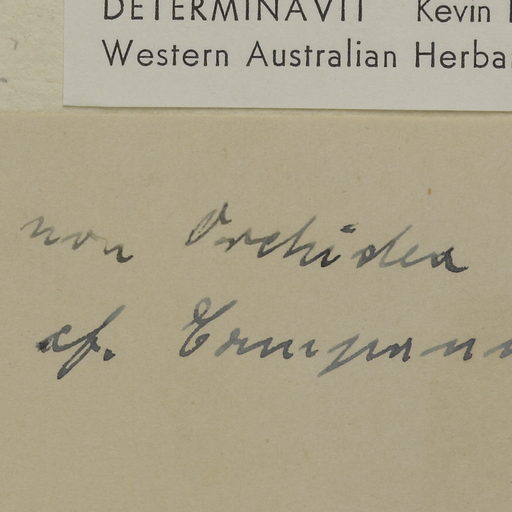 DETERMINAVIT Kevin
Western Australian Herba
non Orchidea
cf.